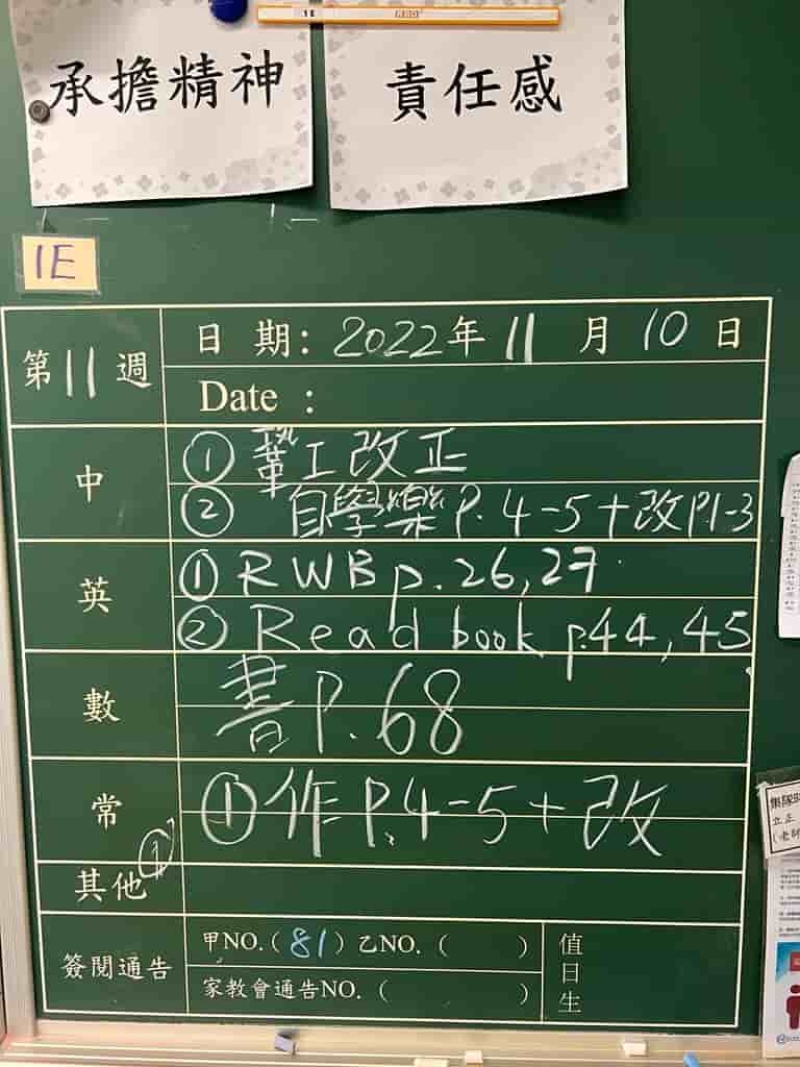 承擔精神
責任感
1E
第11週
日期：2022年11月10日
Date :
中
① 鞏工改正
② 自學樂 P. 4-5+改P1-3
英
① RWB p.26,27
② Read book p.44,45
數
書P.68
常
① 作P.4-5+改
其他
①
簽閱通告
甲NO.(81) 乙NO.( )
家教會通告NO.( )
值日生
集隊
立正
(老師